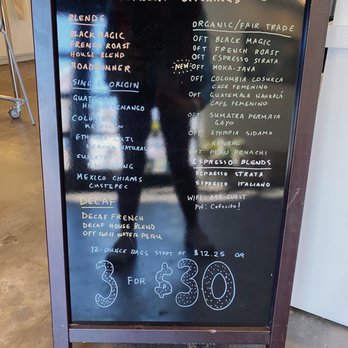 BLENDS
BLACK MAGIC
FRENCH ROAST
HOUSE BLEND
ROADRUNNER
SINGLE ORIGIN
MEXICO CHIAPAS
CUSTEPEC
DECAF
DECAF FRENCH
DECAF HOUSE BLEND
OFT SWISS WATER PERU
ORGANIC/FAIR TRADE
OFT BLACK MAGIC
OFT FRENCH ROAST
OFT ESPRESSO STRATA
NEW OFT MOKA-JAVA
OFT COLOMBIA
CAFE FEMENINO
OFT GUATEMALA
CAFE FEMENINO
OFT SUMATRA PERMATA
GAYO
OFT ETHIOPIA SIDAMO
NATURAL
OFT PERU PENACHI
ESPRESSO BLENDS
ESPRESSO STRATA
ESPRESSO ITALIANO
WIFI: GUEST
12-OUNCE BAGS START AT $12.25 OR
3 FOR $30